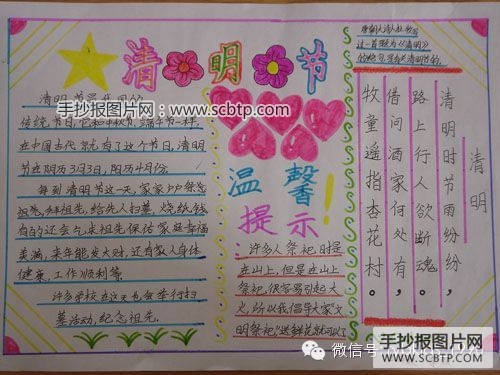 清明节
清明节是我国的
传统节日,它和中秋节、端午节一样,
在中国古代就先有了这个节日,清明
节在阴历3月3日,阳历4月份。
每到清明节这一天,家家户户祭忌
祖先,拜祖先,给先人扫墓,烧纸钱,
有的还会乞求先人保佑家庭幸福
美满,来年能发大财,还有家人身体
健康,工作顺利等。
许多学校在这天也会举行扫
墓活动,纪念祖先。
温馨
提示!
许多人祭祀,时是
在山上,但是在山上
祭祀,很容易引起大
火,所以我倡导大家"文
明祭祀"送鲜花就可以了
的绝句,写有关清明节的。
清明
清明时节雨纷纷,
路上行人欲断魂。
借问酒家何处有,
牧童遥指杏花村。
手抄报图片网
www.scbtp.com
微信号
手抄报图片网
WWW.SCBTP.COM